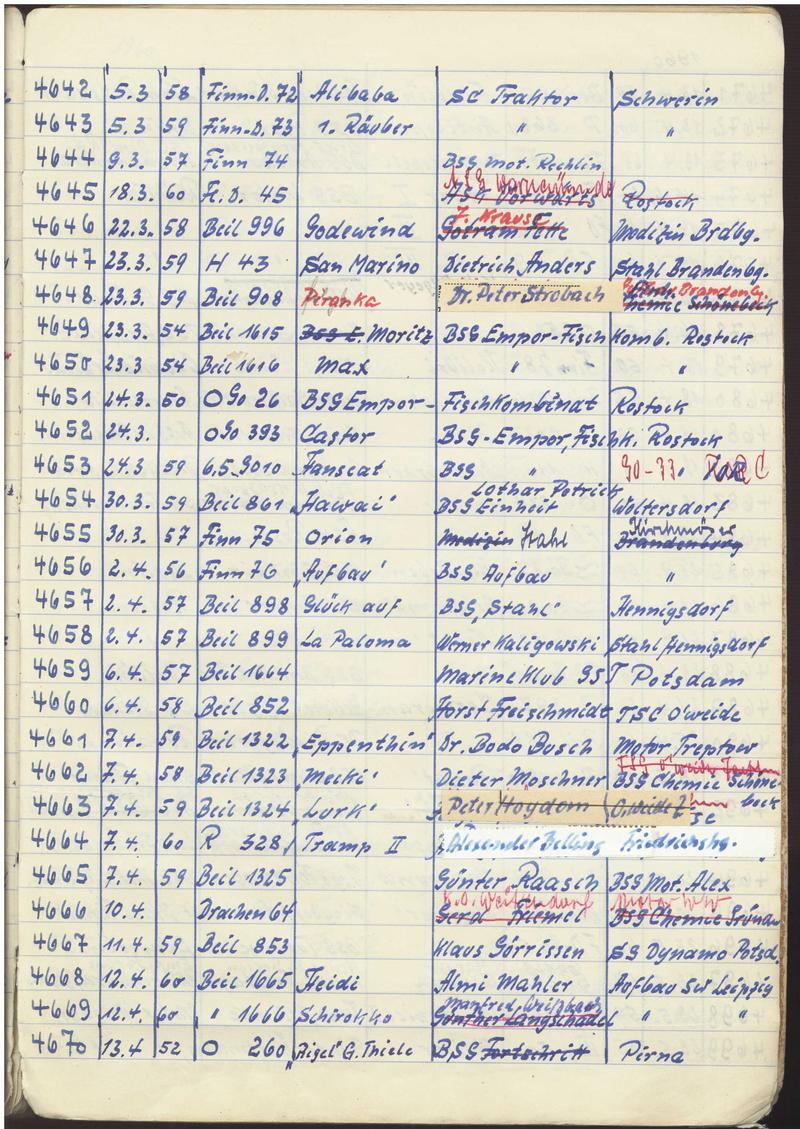 4642 5.3 58 Finn-D. 72 Alibaba SC Traktor Schwerin
4643 5.3 59 Finn-D. 73 1. Räuber " "
4644 9.3. 57 Finn 74 BSG Mot. Rechlin
4645 18.3. 60 F. D. 45 ASK Vorwärts Rostock
4646 22.3. 58 Beil 996 Godewind J. Krause Medizin Brdbg.
4647 23.3. 59 H 43 San Marino Dietrich Anders Stahl Brandenbg.
4648 23.3. 59 Beil 908 Piranka Dr. Peter Strobach Brandenbg. Chemie Schönebeck
4649 23.3. 54 Beil 1615 Moritz BSG Empor-Fisch Komb. Rostock
4650 23.3 54 Beil 1616 Max " "
4651 24.3. 50 O Go 26 BSG Empor- Fischkombinat Rostock
4652 24.3. O Go 393 Castor BSG-Empor, Fischk. Rostock
4653 24.3. 59 Fanseat BSG " "
Lothar Petrick
4654 30.3. 59 Beil 861 „Hawai' BSG Einheit Woltersdorf
4655 30.3. 57 Finn 75 Orion Medizin Stahl Kirchmöser Brandenburg
4656 2.4. 56 Finn 76 „Aufbau' BSG Aufbau "
4657 2.4. 57 Beil 898 Glück auf BSG „Stahl' Hennigsdorf
4658 2.4. 57 Beil 899 La Paloma Werner Kaligowski Stahl Hennigsdorf
4659 6.4. 57 Beil 1664 Marineklub GST Potsdam
4660 6.4. 58 Beil 852 Horst Freischmidt TSC O'weide
4661 7.4. 59 Beil 1322 „Eppenthin' Dr. Bodo Busch Motor Treptow
4662 7.4. 58 Beil 1323 „Mecki' Dieter Moschner BSG Chemie Schönebeck
4663 7.4. 59 Beil 1324 „Lurk' Peter Hoydem O.weide
4664 7.4. 60 R 328 Tramp II Alexander Belling Friedrichshg.
4665 7.4. 59 Beil 1325 Günter Raasch BSG Mot. Alex
4666 10.4. Drachen 64 Gerd Hiemel BSG Chemie Grünau
4667 11.4. 59 Beil 853 Klaus Görrissen SG Dynamo Potsd.
4668 12.4. 60 Beil 1665 Heidi Almi Mahler Aufbau SW Leipzig
4669 12.4. 60 " 1666 Schirokko Manfred Günther Langschädel " "
4670 13.4 52 O 260 „Aigel" G. Thiele BSG Fortschritt Pirna